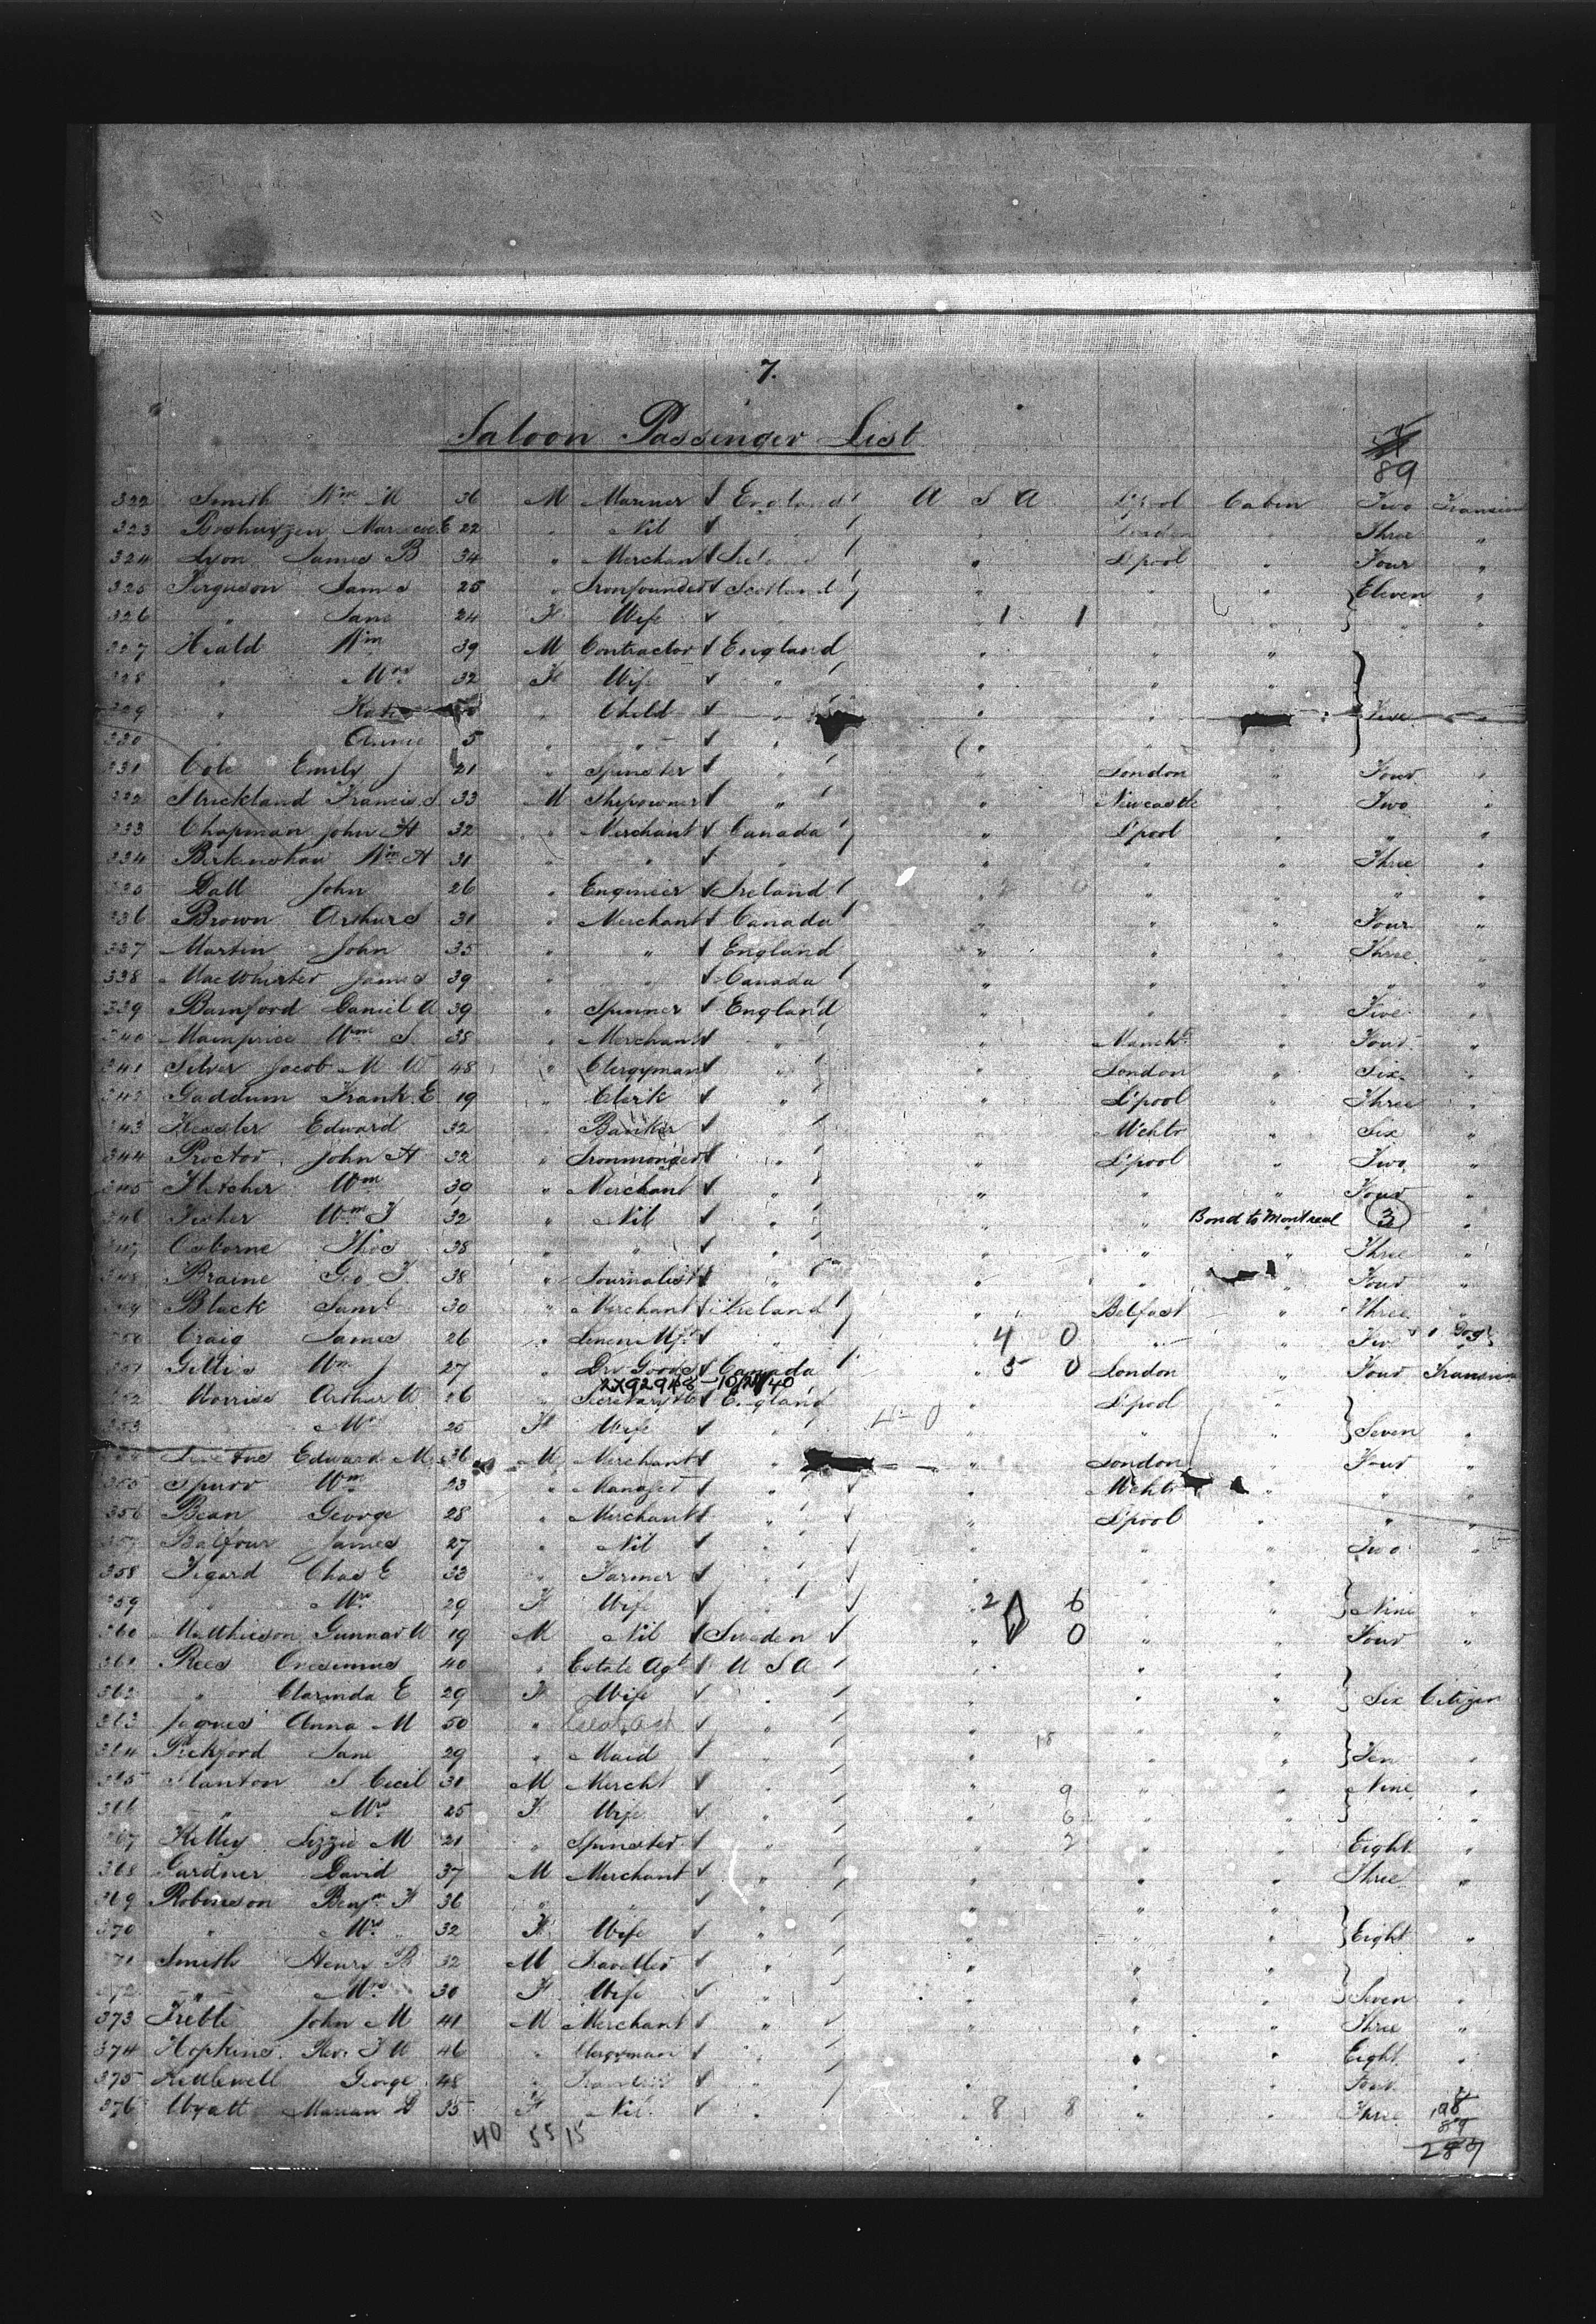 7.
Saloon Passenger List
89
322 Smith Wm M 36 M Mariner √ England U S A L'pool Cabin Two Transient
323 Marcell E 22 " Nil √ " " London " Three "
324 Lyon James B 34 " Merchant √ Ireland " L'pool " Four "
325 Ferguson James 25 " Ironfounder √ Scotland " " " Eleven "
326 " Jane 24 F Wife √ " " 1 1 " " " "
327 Heald Wm 39 M Contractor √ England " " "
328 " Mrs 32 F Wife √ " " " "
329 " Kate " Child √ " " " Five "
330 " Annie 5 " " √ " " " "
331 Cole Emily J 21 " Spinster √ " " London " Four "
332 Strickland Francis S 33 M Shipowner √ " " Newcastle " Two "
333 Chapman John H 32 " Merchant √ Canada " L'pool " " "
334 Birkenshaw Wm H 31 " " √ " " " " Three "
335 Dall John 26 " Engineer √ Ireland " " " " "
336 Brown Arthur S 31 " Merchant √ Canada " " " Four "
337 Martin John 35 " " √ England " " " Three "
338 MacWhirter James 39 " " √ Canada " " " " "
339 Bamford Daniel A 39 " Spinner √ England " " " Five "
340 Mainprice Wm S 38 " Merchant √ " " Manch " Four "
341 Silver Jacob M W 48 " Clergyman √ " " London " Six "
342 Gaddum Frank E 19 " Clerk √ " " L'pool " Three "
343 Kessler Edward 32 " Banker √ " " Mchtr " Six "
344 Proctor John H 32 " Ironmonger √ " " L'pool " Two "
345 Fletcher Wm 39 " Merchant √ " " " " Four "
346 Fisher Wm J 32 " Nil √ " " " Bond to Montreal 3 "
347 Osborne Thos 38 " " √ " " " " Three "
348 Braine Geo T 38 " Journalist √ " " " " Four "
349 Black Saml 30 " Merchant √ Ireland " Belfast " Three "
350 Craig James 26 " Linen Mfr √ " 4 0 " " 1 Dog
351 Gillies Wm J 27 " Dry Goods √ Canada 5 0 London Four Transient
2X92948 - 10/21/40
352 Morris Arthur W 26 " Secretary √ England " L'pool "
353 Mrs 25 F Wife √ " 4 0 " " Seven "
Edward M 36 M Merchant √ " London " Four "
355 Spurr Wm 23 " Manager √ " " Mchtr " " "
356 Bean George 28 " Merchant √ " " L'pool " " "
357 Balfour James 27 " Nil √ " " " " Two "
358 Chas E 33 " Farmer √ " " " "
359 " Mrs 29 F Wife √ " 2 6 " " Nine "
360 Gunnar W 19 M Nil √ Sweden " 0 " " Four "
361 Rees Onesimus 40 " Estate Agt √ U S A " " "
362 " Clarinda E 29 F Wife √ " " " " Six Citizen
363 Jaques Anna M 50 " √ " " " "
364 Pickford Jane 29 " Maid √ " 18 " " Ten "
365 Stanton S Cecil 31 M Mercht √ " 9 " " Nine "
366 " Mrs 25 F Wife √ " 6 " " "
367 Kelley Lizzie M 21 " Spinster √ " 2 " " Eight "
368 Gardner David 37 M Merchant √ " " " " Three "
369 Robinson Benjn F 36 " " √ " " " "
370 " Mrs 32 F Wife √ " " " " Eight "
371 Smith Henry B 32 M Traveller √ " " " "
372 " Mrs 30 F Wife √ " " " " Seven "
373 Treble John M 41 M Merchant √ " " " " Three "
374 Hopkins Rev. J W 46 " Clergyman √ " " " " Eight "
375 Kettlewell George 48 " √ " " " " Four "
376 Wyatt Marian D 35 F Nil √ " 8 8 " " Three
198
89
287
40 55 15